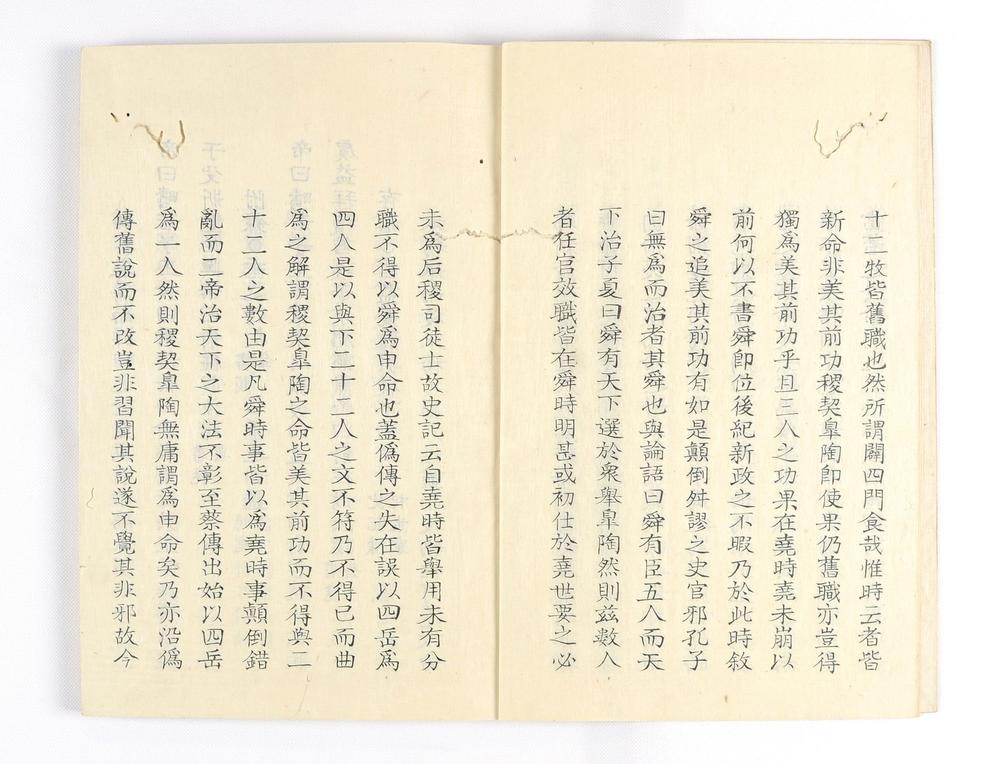 十二牧皆舊職也然所謂闢四門食哉惟時云者皆
新命非美其前功稷契皐陶卽使果仍舊職亦豈得
獨爲美其前功乎且三人之功果在堯時堯未崩以
前何以不書舜卽位後紀新政之不暇乃於此時敘
舜之追美其前功有如是顚倒舛謬之史官邪孔子
曰無爲而治者其舜也與論語曰舜有臣五人而天
下治子夏曰舜有天下選於衆舉皐陶然則玆數人
者任官效職皆在舜時明甚或初仕於堯世要之必
未爲后稷司徒士故史記云自堯時皆舉用未有分
職不得以舜爲申命也蓋僞傳之失在誤以四岳爲
四人是以與下二十二人之文不符乃不得已而曲
爲之解謂稷契皐陶之命皆美其前功而不得與二
十二人之數由是凡舜時事皆以爲堯時事顚倒錯
亂而二帝治天下之大法不彰至蔡傳出始以四岳
爲一人然則稷契皐陶無庸謂爲申命矣乃亦沿僞
傳舊說而不改豈非習聞其說遂不覺其非邪故今